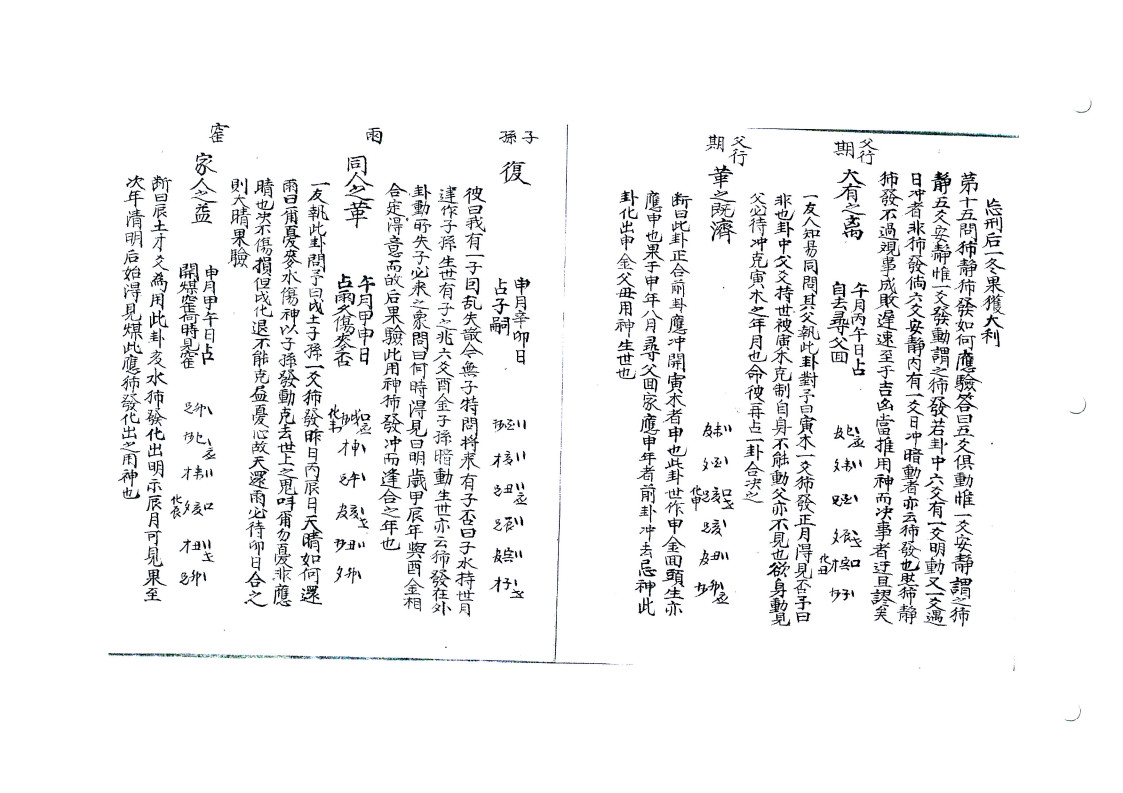 忌刑后一冬果獲大利
第十五問㹂静㹂發如何應驗答曰五爻俱動惟一爻安静謂之㹂
静五爻安静惟一爻發動謂之㹂發若卦中六爻有一爻明動又一爻遇
日冲者非㹂發倘六爻安静内有一爻日冲暗動者亦云㹂發也㹂静
㹂發不過視事成敗遲速至于吉凶當推用神而决事者迂且謬矣
父行
期
大有之离
午月丙午日占
自去尋父囬
化丑
一友人知易同問其父執此卦對予曰寅木一爻㹂發正月得見否予曰
非也卦中父爻持世被寅木克制自身不能動父亦不見也欲身動見
父必待冲克寅木之年月也命彼再占一卦合决之
父行
期
革之既濟
化申
断曰此卦正合前卦應冲開寅木者申也此卦世作申金囬頭生亦
應申也果于申年八月尋父囬家應申年者前卦冲去忌神此
卦化出申金父母用神生世也
子
孫
復
申月辛卯日
占子嗣
彼曰我有一子因乱失識今無子特問將來有子否曰子水持世月
建作子孫生世有子之兆六爻酉金子孫暗動生世亦云㹂發在外
卦動所失子必來之象問曰何時得見曰明歳甲辰年與酉金相
合定得意而故后果驗此用神㹂發冲而逢合之年也
雨
同人之革
午月甲申日
占雨久傷麥否
化未
一友執此卦問予曰戌土子孫一爻㹂發昨日丙辰日天晴如何還
雨曰爾憂麥水傷神以子孫發動克去世上之鬼呌爾勿憂非應
晴也决不傷損但戌化退不能克尽憂心故天還雨必待卯日合之
則大晴果驗
窑
家人之益
申月甲午日占
開煤窑啇時見窑
化辰
断曰辰土才爻為用此卦亥水㹂發化出明示辰月可見果至
次年清明后始得見煤此應㹂發化出之用神也